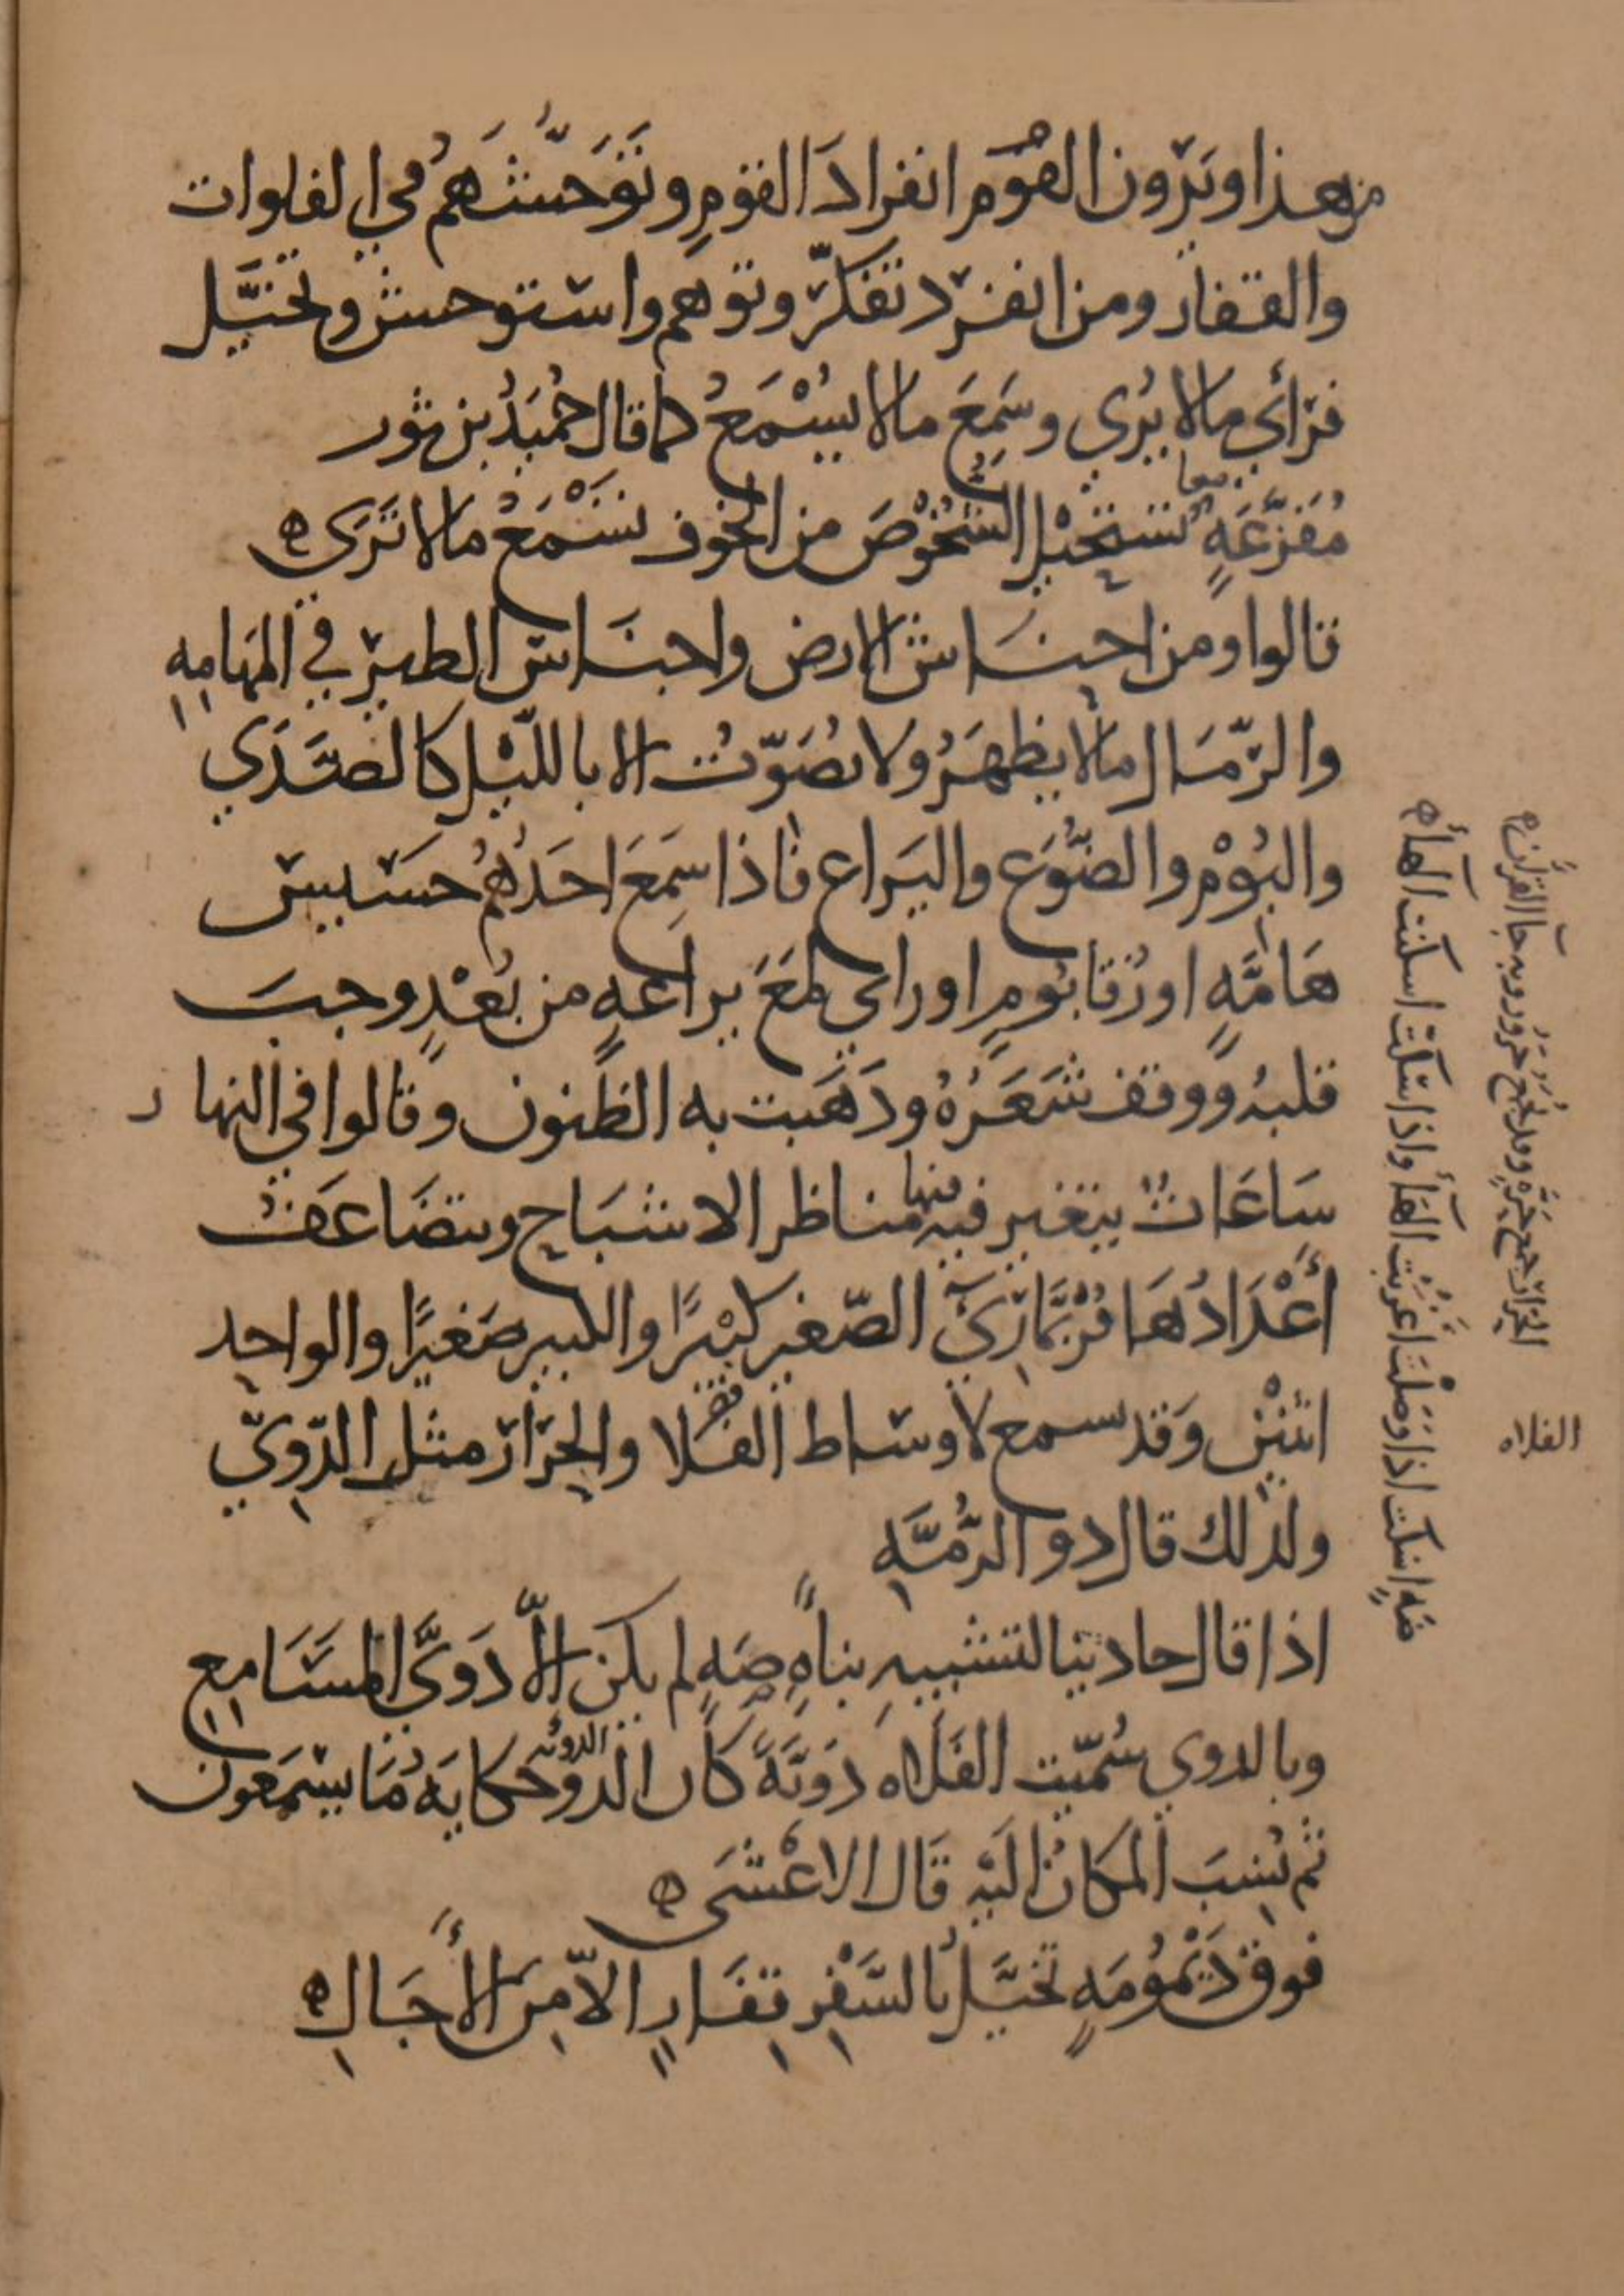 من هذا ويرون القوم انفرادَ القومِ وتَوَحُّشَهُم في الفلوات
والقفار ومن انفرد تفكّر وتوهم واستوحش وتخيَّل
فرأي مالا يُري وسَمِعَ مالا يُسْمَعُ كما قال حُمَيدُ بن ثور
مُفَزَّعَةٍ تستحيل الشُّخُوْصَ من الخوف تَسْمَعُ مالا تَرَى ه
قالوا ومن احنَاش الارض واجناس الطير في المهَامِهِ
والرّمَال مالا يظهَرُ ولا يُصَوّتُ الا باللّيْل كالصَّدَي
والبُوْمِ والضُّوَع واليَراع فاذا سَمِعَ احَدُهُم حَسَيس
هَامَّةٍ او زُقا بُومٍ او راي لمَعَ يراعَةٍ من بُعْدٍ وجبَ
قلبُه ووقف شَعَرُهُ وذَهَبت به الظُنون وقالوا في النهار
سَاعَاتٌ يتغير فيه منها مناظر الاشبَاح ويتضَاعَفُ
أعْدَادُهَا فرُبَّما رَيَ الصّغير كبْيرًا والكبير صَغيرًا والواحِد
اثنيْنِ وَقد سمع لاوساط الفَلا والحِرَار مثل الدّوِيّ
ولذلك قال ذو الرُّمَّهِ
اذا قال حادينا لتشبيهِ نباةٍ صَهٍ لم يكن الاّ دَويَّ المسَامِع
وبالدوي سُمّيت الفَلاه دَويَّةً كان الدوّ الدويه حكايَةُ مَا يسْمَعون
ثم نُسِبَ المكانُ الَيْهِ قَال الاعْشَى ه
فوق دَيْمُومَةٍ تخيَّلُ بالسَّفْرِ قِفَارٍ الاّ مِنَ الأجَالِ ه
صَهٍ اسكت اذا وَصَلْتَ اعْرَبْتَ الهَآ واذا سَكَتّ اسكنت الهآه
الحِرَار جمع حَرَّهٍ وقد تجمع حَرُور وبه جآ القرآن ه
الفلاه